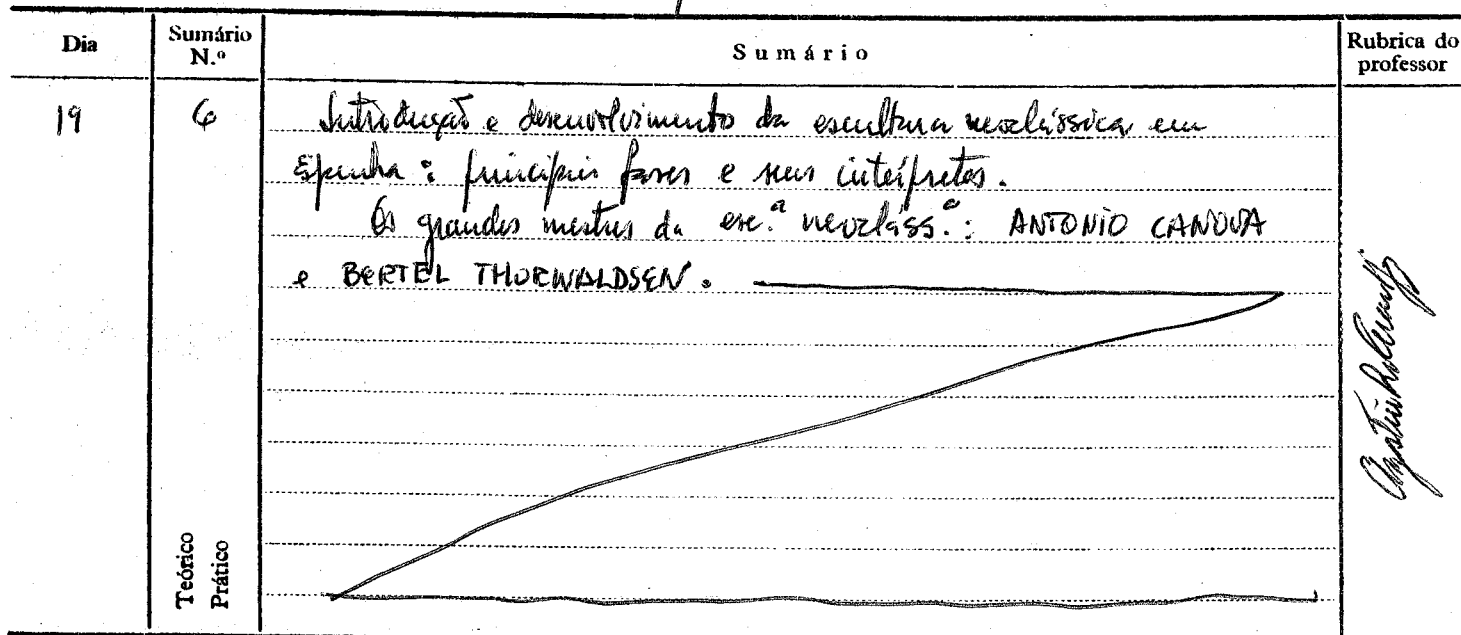 Dia Sumário N.º Sumário Rubrica do professor
19 6 Introdução e desenvolvimento da escultura neoclássica em
Espanha: principais fases e seus intérpretes.
Os grandes mestres da esc.ª neocláss.ª: ANTONIO CANOVA
e BERTEL THORWALDSEN.
Teórico
Prático